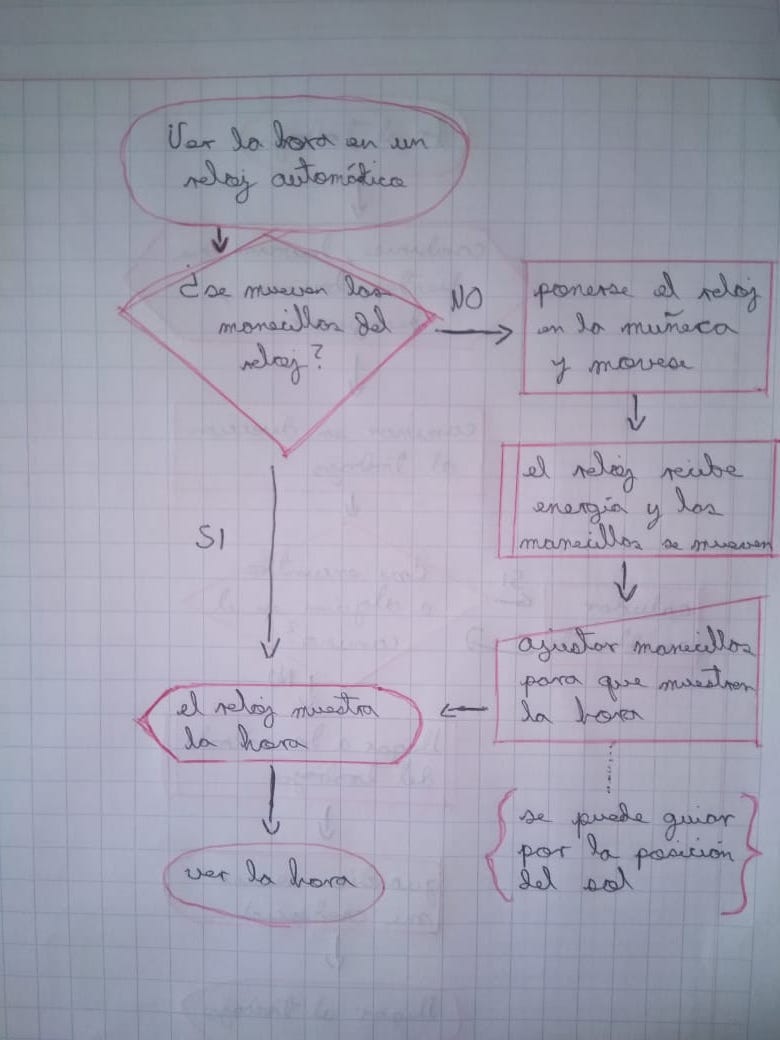 Ver la hora en un
reloj automático
¿se mueven las
manecillas del
reloj?
NO
ponerse el reloj
en la muñeca
y moverse
el reloj recibe
energía y las
manecillas se mueven
ajustar manecillas
para que muestren
la hora
se puede guiar
por la posición
del sol
SI
el reloj muestra
la hora
ver la hora